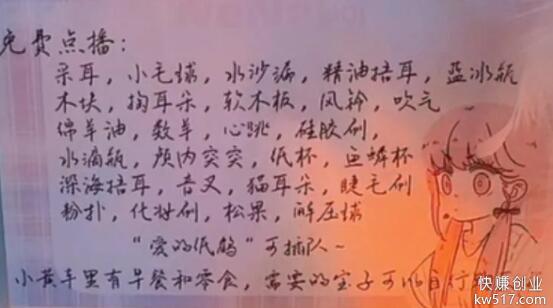 免费点播：
采耳，小毛球，水沙漏，精油掊耳，蓝冰瓶
木块，掏耳朵，软木板，风铃，吹气
绵羊油，数羊，心跳，硅胶刷，
水滴瓶，颅内突突，纸杯，鱼鳞杯
深海掊耳，音叉，猫耳朵，睫毛刷
粉扑，化妆刷，松果，解压球
“爱的纸鹤”可插队~
小黄车里有早餐和零食，需要的宝子可以自行
快赚创业
kw517.com